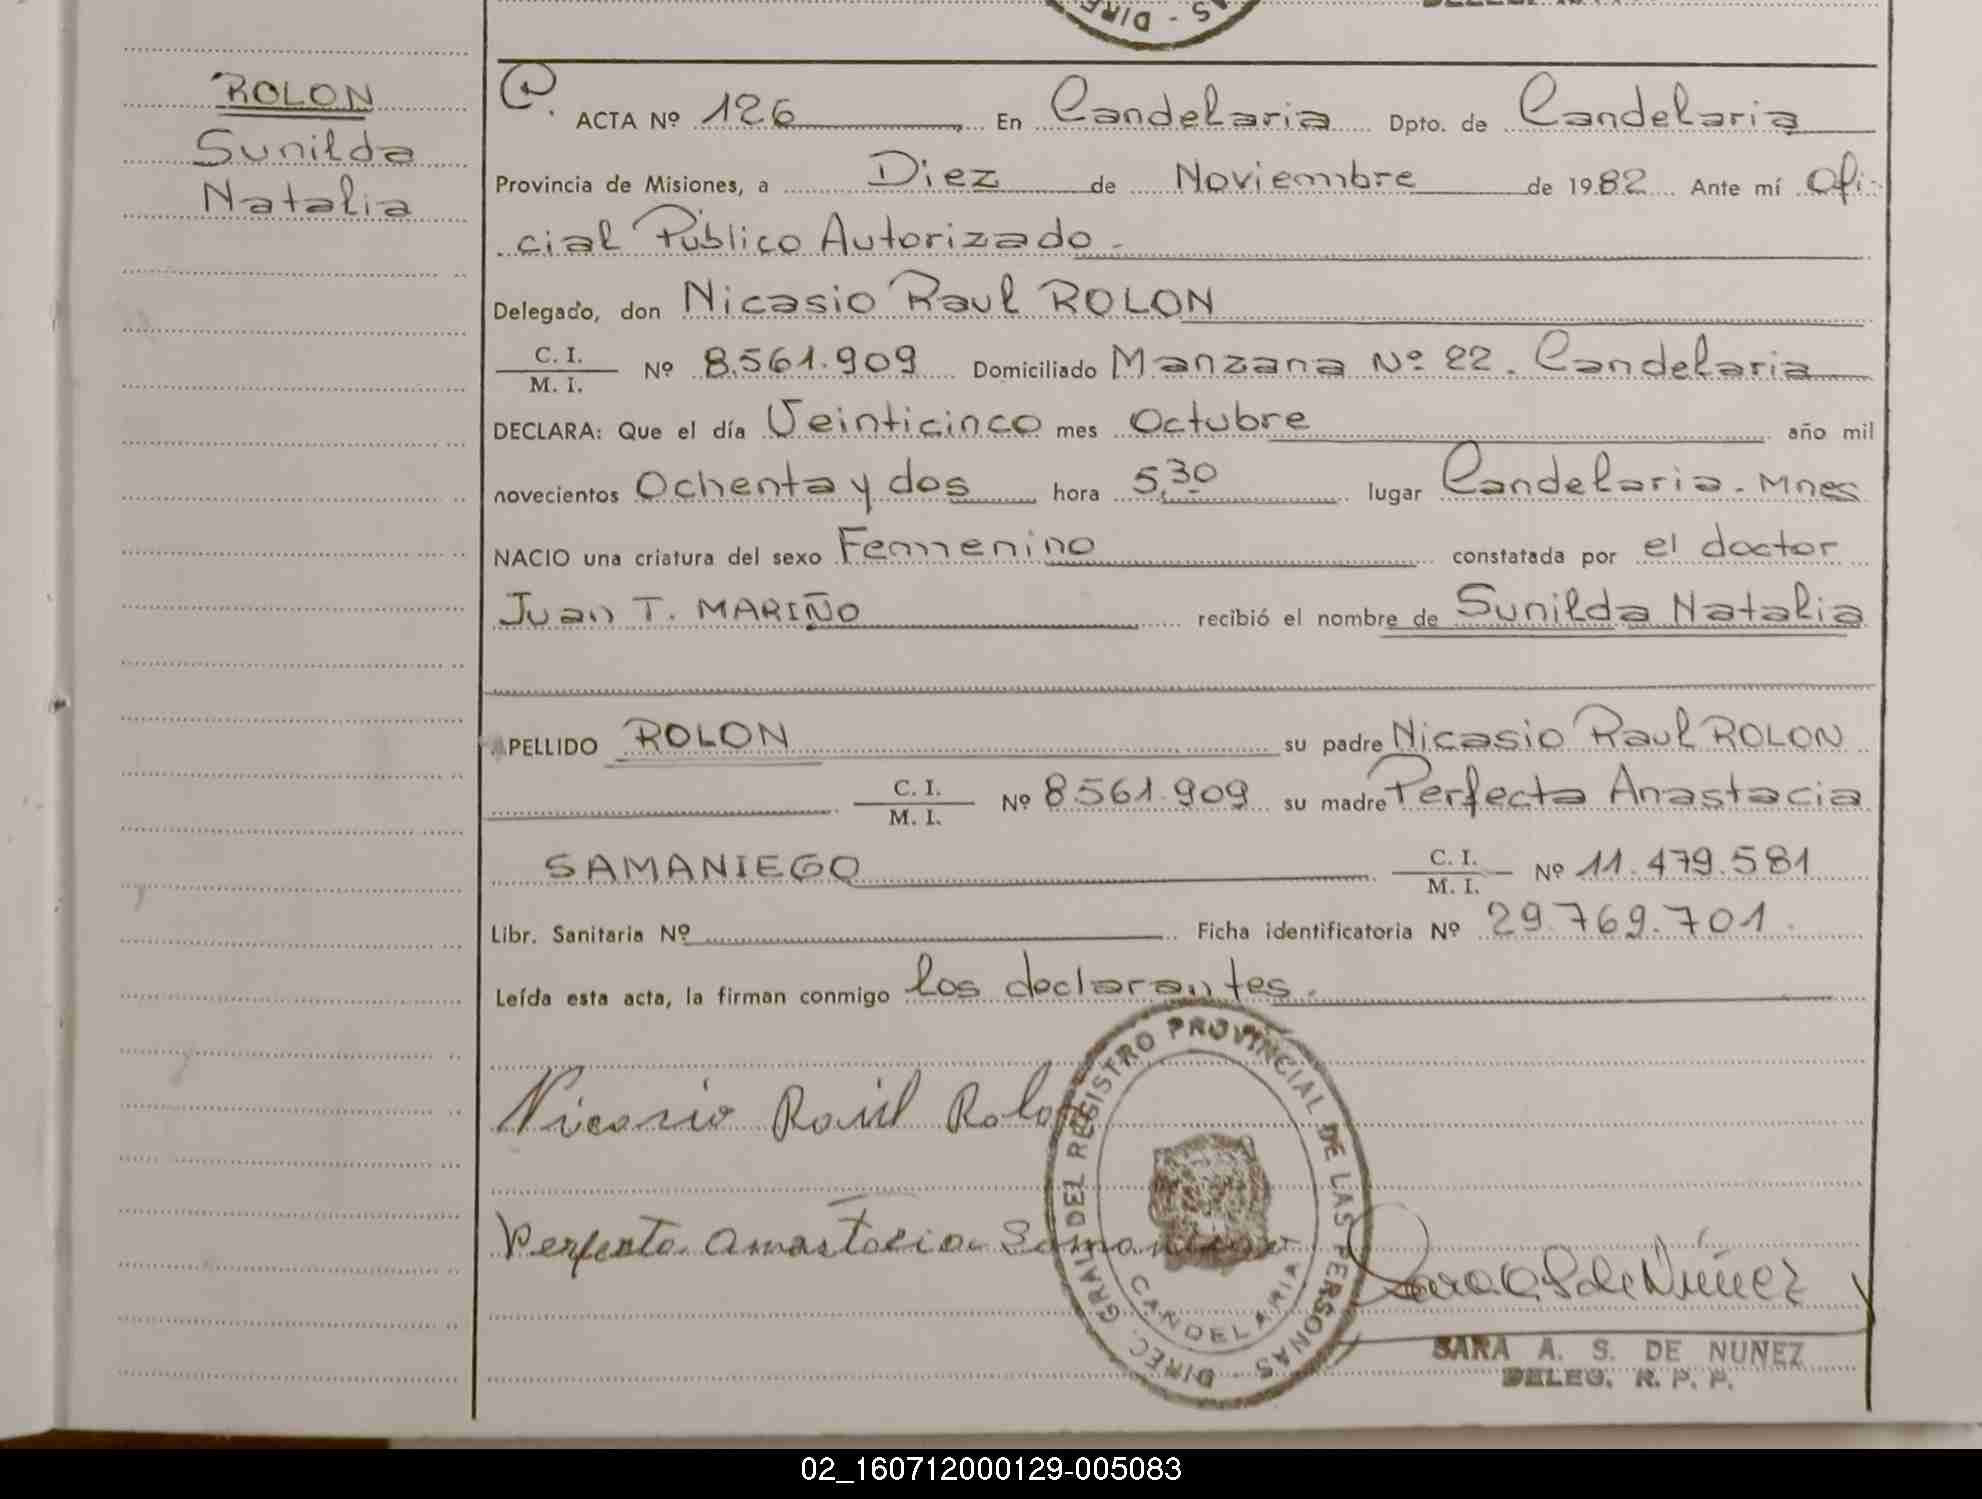 AS - DIRE
ROLON
Sunilda
Natalia
ACTA Nº 126 En Candelaria Dpto. de Candelaria
Provincia de Misiones, a Diez de Noviembre de 1982 Ante mí Ofi-
cial Público Autorizado.
Delegado, don Nicasio Raul ROLON
C. I. / M. I. Nº 8.561.909 Domiciliado Manzana Nº 22. Candelaria
DECLARA: Que el día Veinticinco mes Octubre año mil
novecientos Ochenta y dos hora 5,30 lugar Candelaria. Mnes
NACIO una criatura del sexo Femenino constatada por el doctor
Juan T. MARIÑO recibió el nombre de Sunilda Natalia
APELLIDO ROLON su padre Nicasio Raul ROLON
C. I. / M. I. Nº 8561.909 su madre Perfecta Anastacia
SAMANIEGO C. I. / M. I. Nº 11.479.581
Libr. Sanitaria Nº Ficha identificatoria Nº 29.769.701.
Leída esta acta, la firman conmigo los declarantes.
Nicasio Raúl Rolon
Perfecta Anastacia Samaniego
DIREC. GRAL DEL REGISTRO PROVINCIAL DE LAS PERSONAS -
CANDELARIA
Sara A S de Núñez
SARA A. S. DE NUÑEZ
DELEG. R. P. P.
02_160712000129-005083